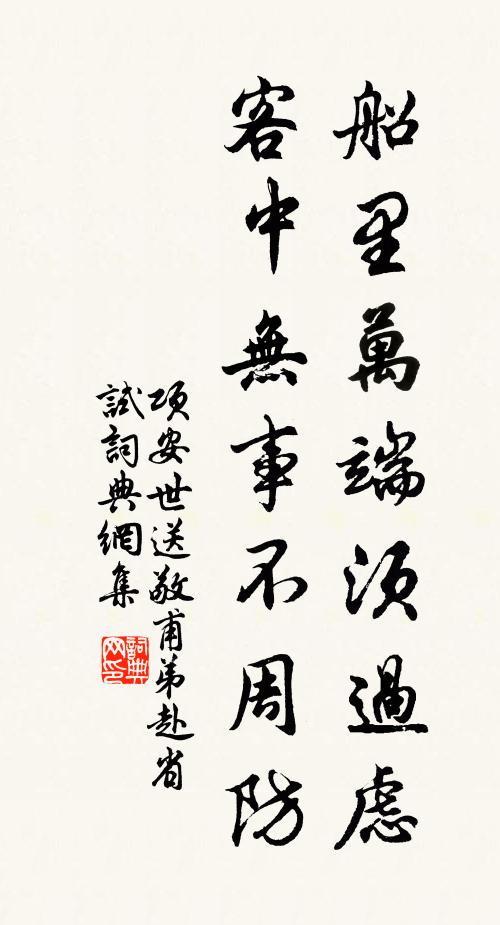 船里萬端須過慮
客中無事不周防
項安世送敬甫弟赴省
試詞典網集
詞典網印